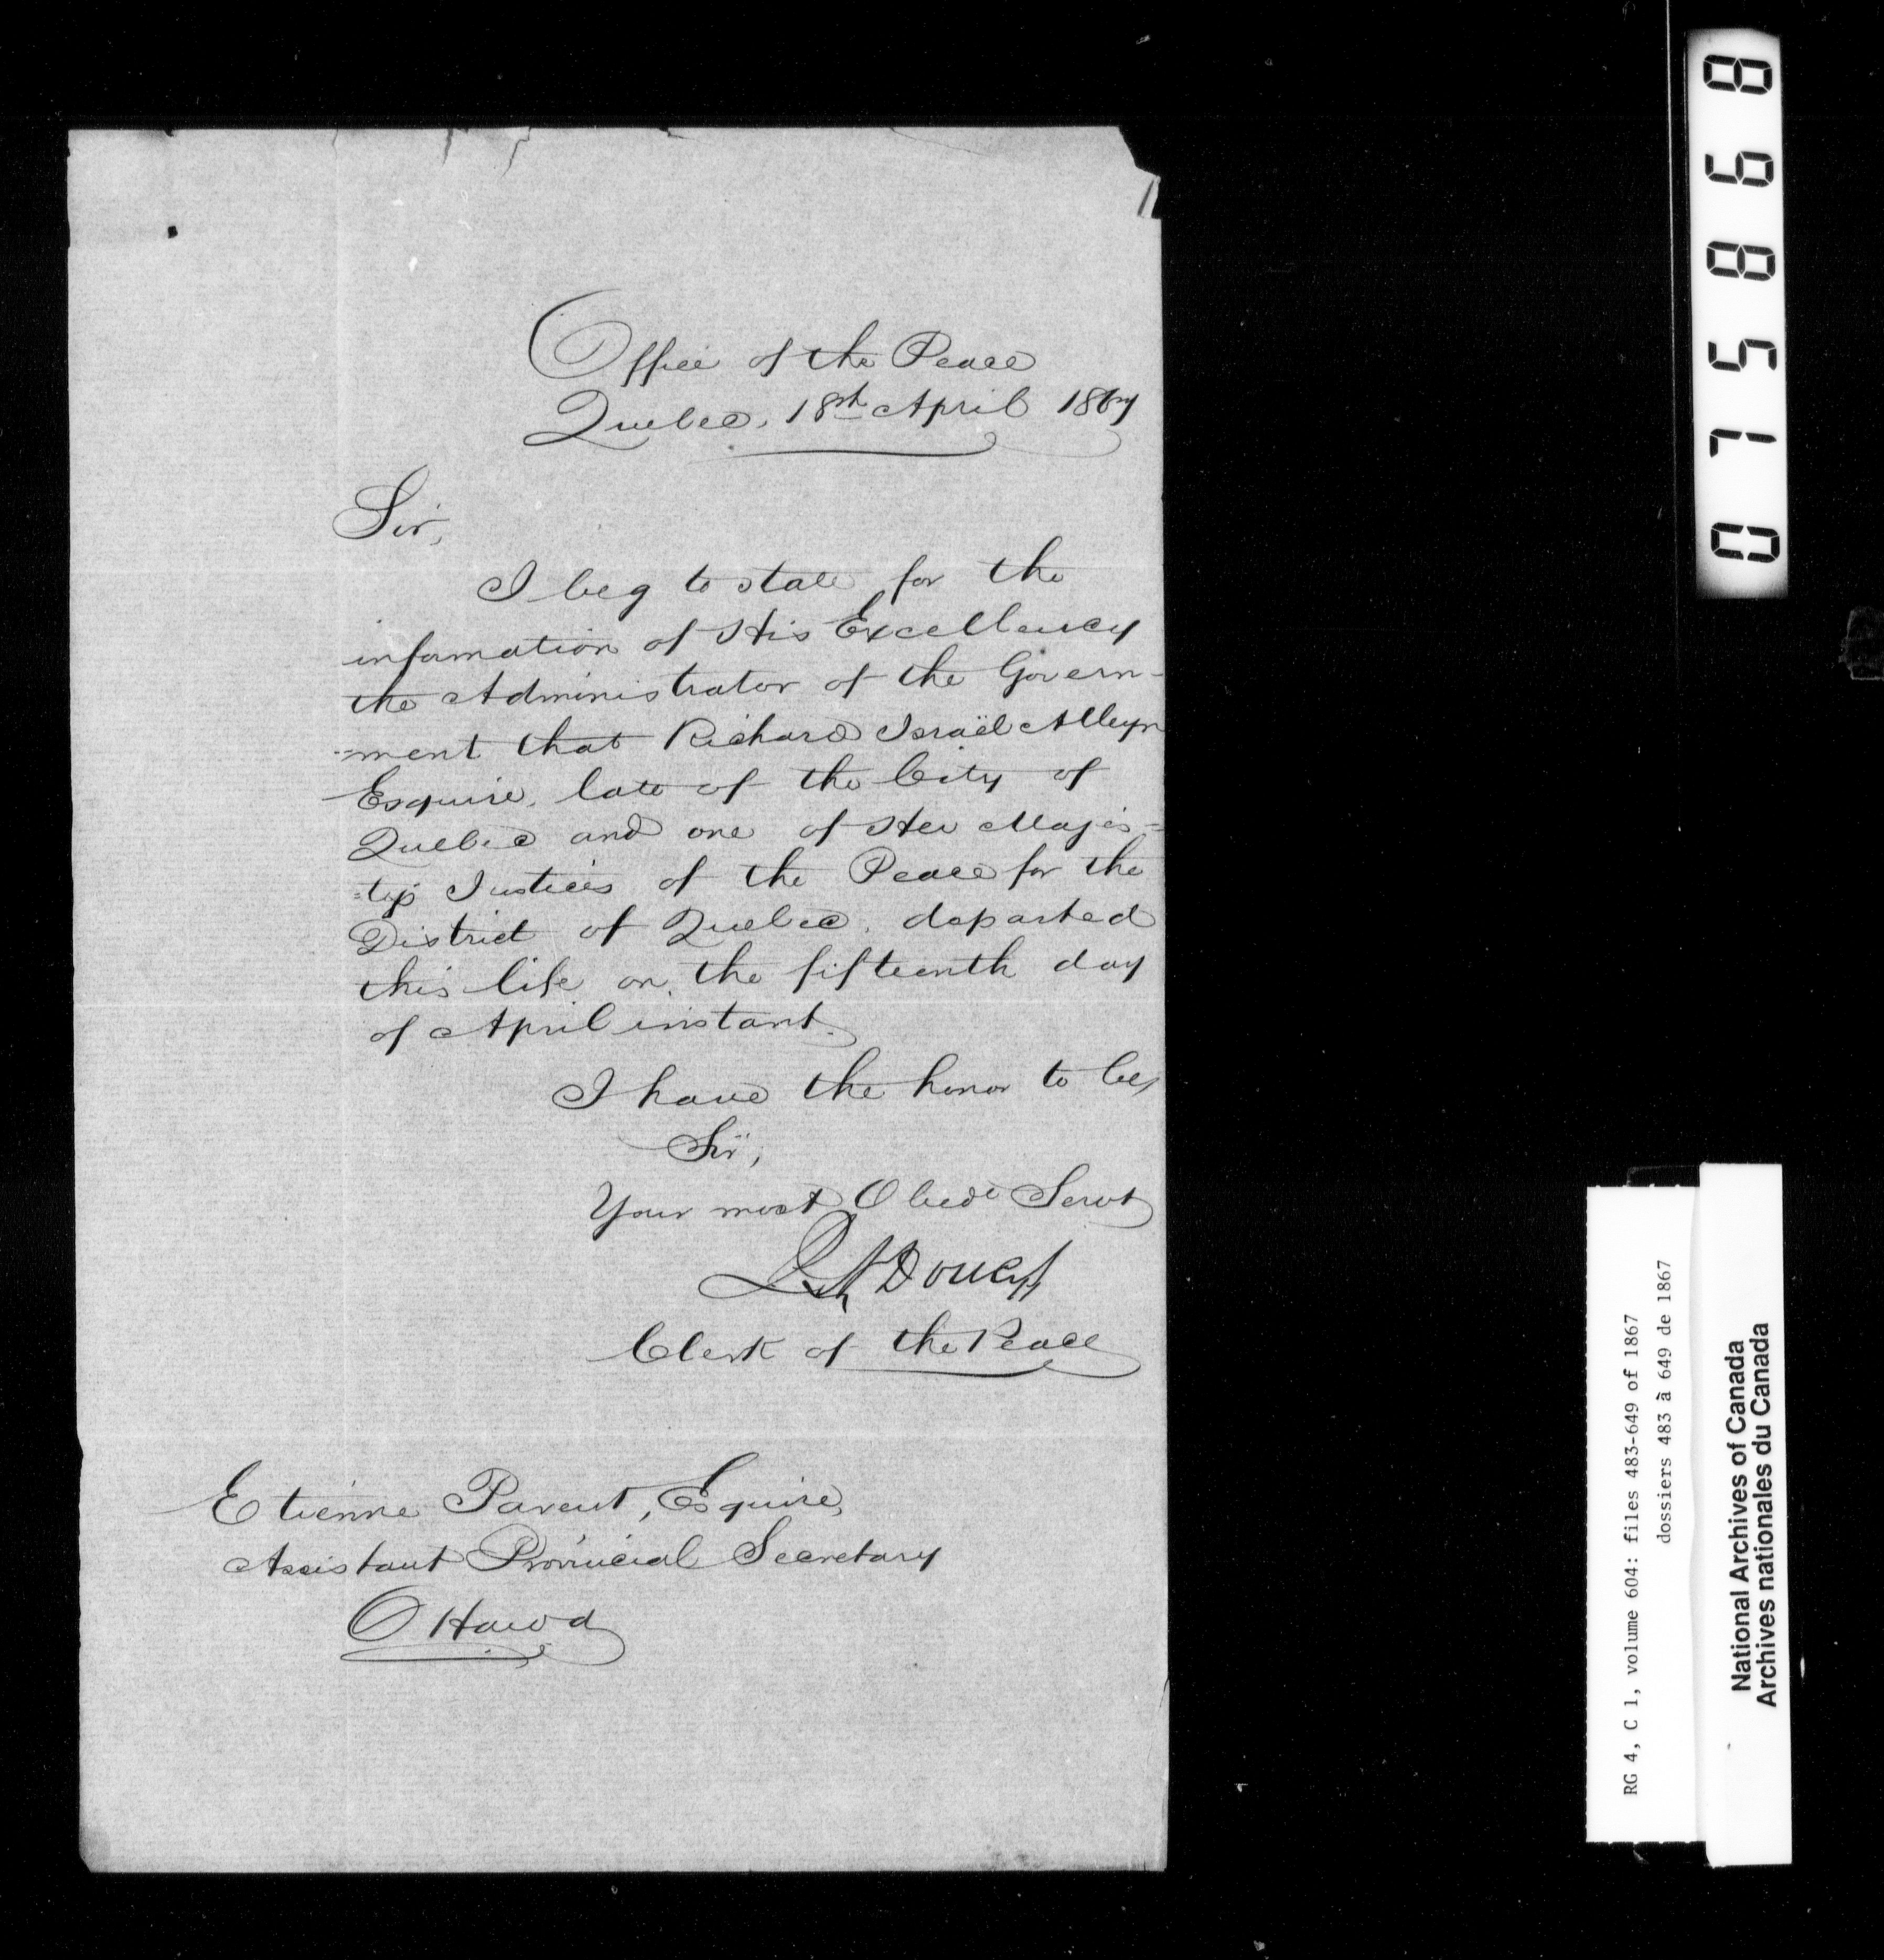 Office of the Peace
Quebec, 18th April 1867
Sir,
I beg to state for the
information of His Excellency
the Administrator of the Govern-
-ment that Richard Israël Alleyn
Esquire, late of the City of
Quebec and one of Her Majes=
=ty's Justices of the Peace for the
District of Quebec, departed
this life on the fifteenth day
of April instant.
I have the honor to be,
Sir,
Your most Obedt Servt
Doucet
Clerk of the Peace
Etienne Parent, Esquire,
Assistant Provincial Secretary
Ottawa
075868
RG 4, C 1, volume 604: files 483-649 of 1867
dossiers 483 à 649 de 1867
National Archives of Canada
Archives nationales du Canada